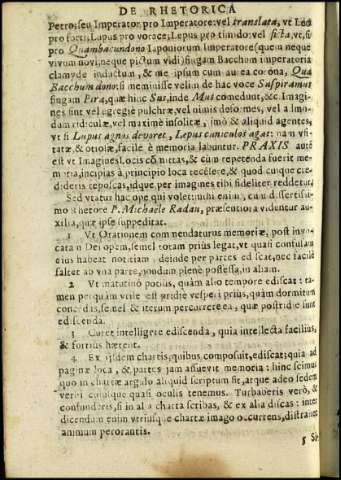 DE RHETORICA
Petro, seu Imperator pro Imperatore: vel translata, vt Leo
pro forti, Lupus pro vorace, Lepus pro timido: vel ficta, vt, si
pro Quambacundono Iaponiorum Imperatore (quem neque
vivum novi, neque pictum vidi) fingam Bacchum imperatoria
clamyde indutum, & me ipsum cum au ea corona, Qua
Bacchum dono: si meminisse velim de hac voce Suspiramus
fingam Pira, quæ hinc Sus, inde Mus comedunt, &c. Imagi-
nes sint vel egregiè pulchræ, vel nimis dolo mes, vel a lmo-
dum ridiculæ, vel maximè insolitæ, imò & aliquid agentes,
vt si Lupus agnos devoret, Lepus caniculos agat: nam vsi-
tatæ, & otiosæ, facile è memoria labuntur. PRAXIS autē
est vt Imagines locis cōmittas, & cum repetenda fuerit me-
moria, incipias à principio loca recolere, & quod cuique cre-
dideris reposcas, idque per imagines tibi fideliter reddetur.
Sed vtatur hac ope qui volet: mihi enim, cum dissertissi-
mo Rhetore P. Michaele Radau, præsentiora videntur au-
xilia, quæ ipse suppeditat.
1 Vt Orationem commendaturus memoriæ, post invo-
catam Dei opem, semel totam prius legat, vt quasi confusam
eius habeat notitiam, deinde per partes ediscat, nec facilè
saltet ab vna parte, nondum plenè possessa, in aliam.
2 Vt matutino potius, quàm alio tempore ediscat: ta-
men perquàm vtile est pridie vesperi prius, quàm dormitum
concedis, semel & iterum percurrere ea, quæ postridie sunt
ediscenda.
3 Curet intelligere ediscenda, quia intellecta facilius,
& fortius hærent.
4 Ex ijsdem chartis, quibus composuit, ediscat: quia ad
paginæ loca, & partes jam assuevit memoria: hinc scimus
quo in chartæ angulo aliquid scriptum sit, atque adeo sedem
verbi cuiusque quasi oculis tenemus. Turbaveris verò, &
confuderis, si in alia charta scribas, & ex alia discas: inter
dicendum enim vtriusque chartæ imago occurrens, distrahet
animum perorantis.
5 Sit